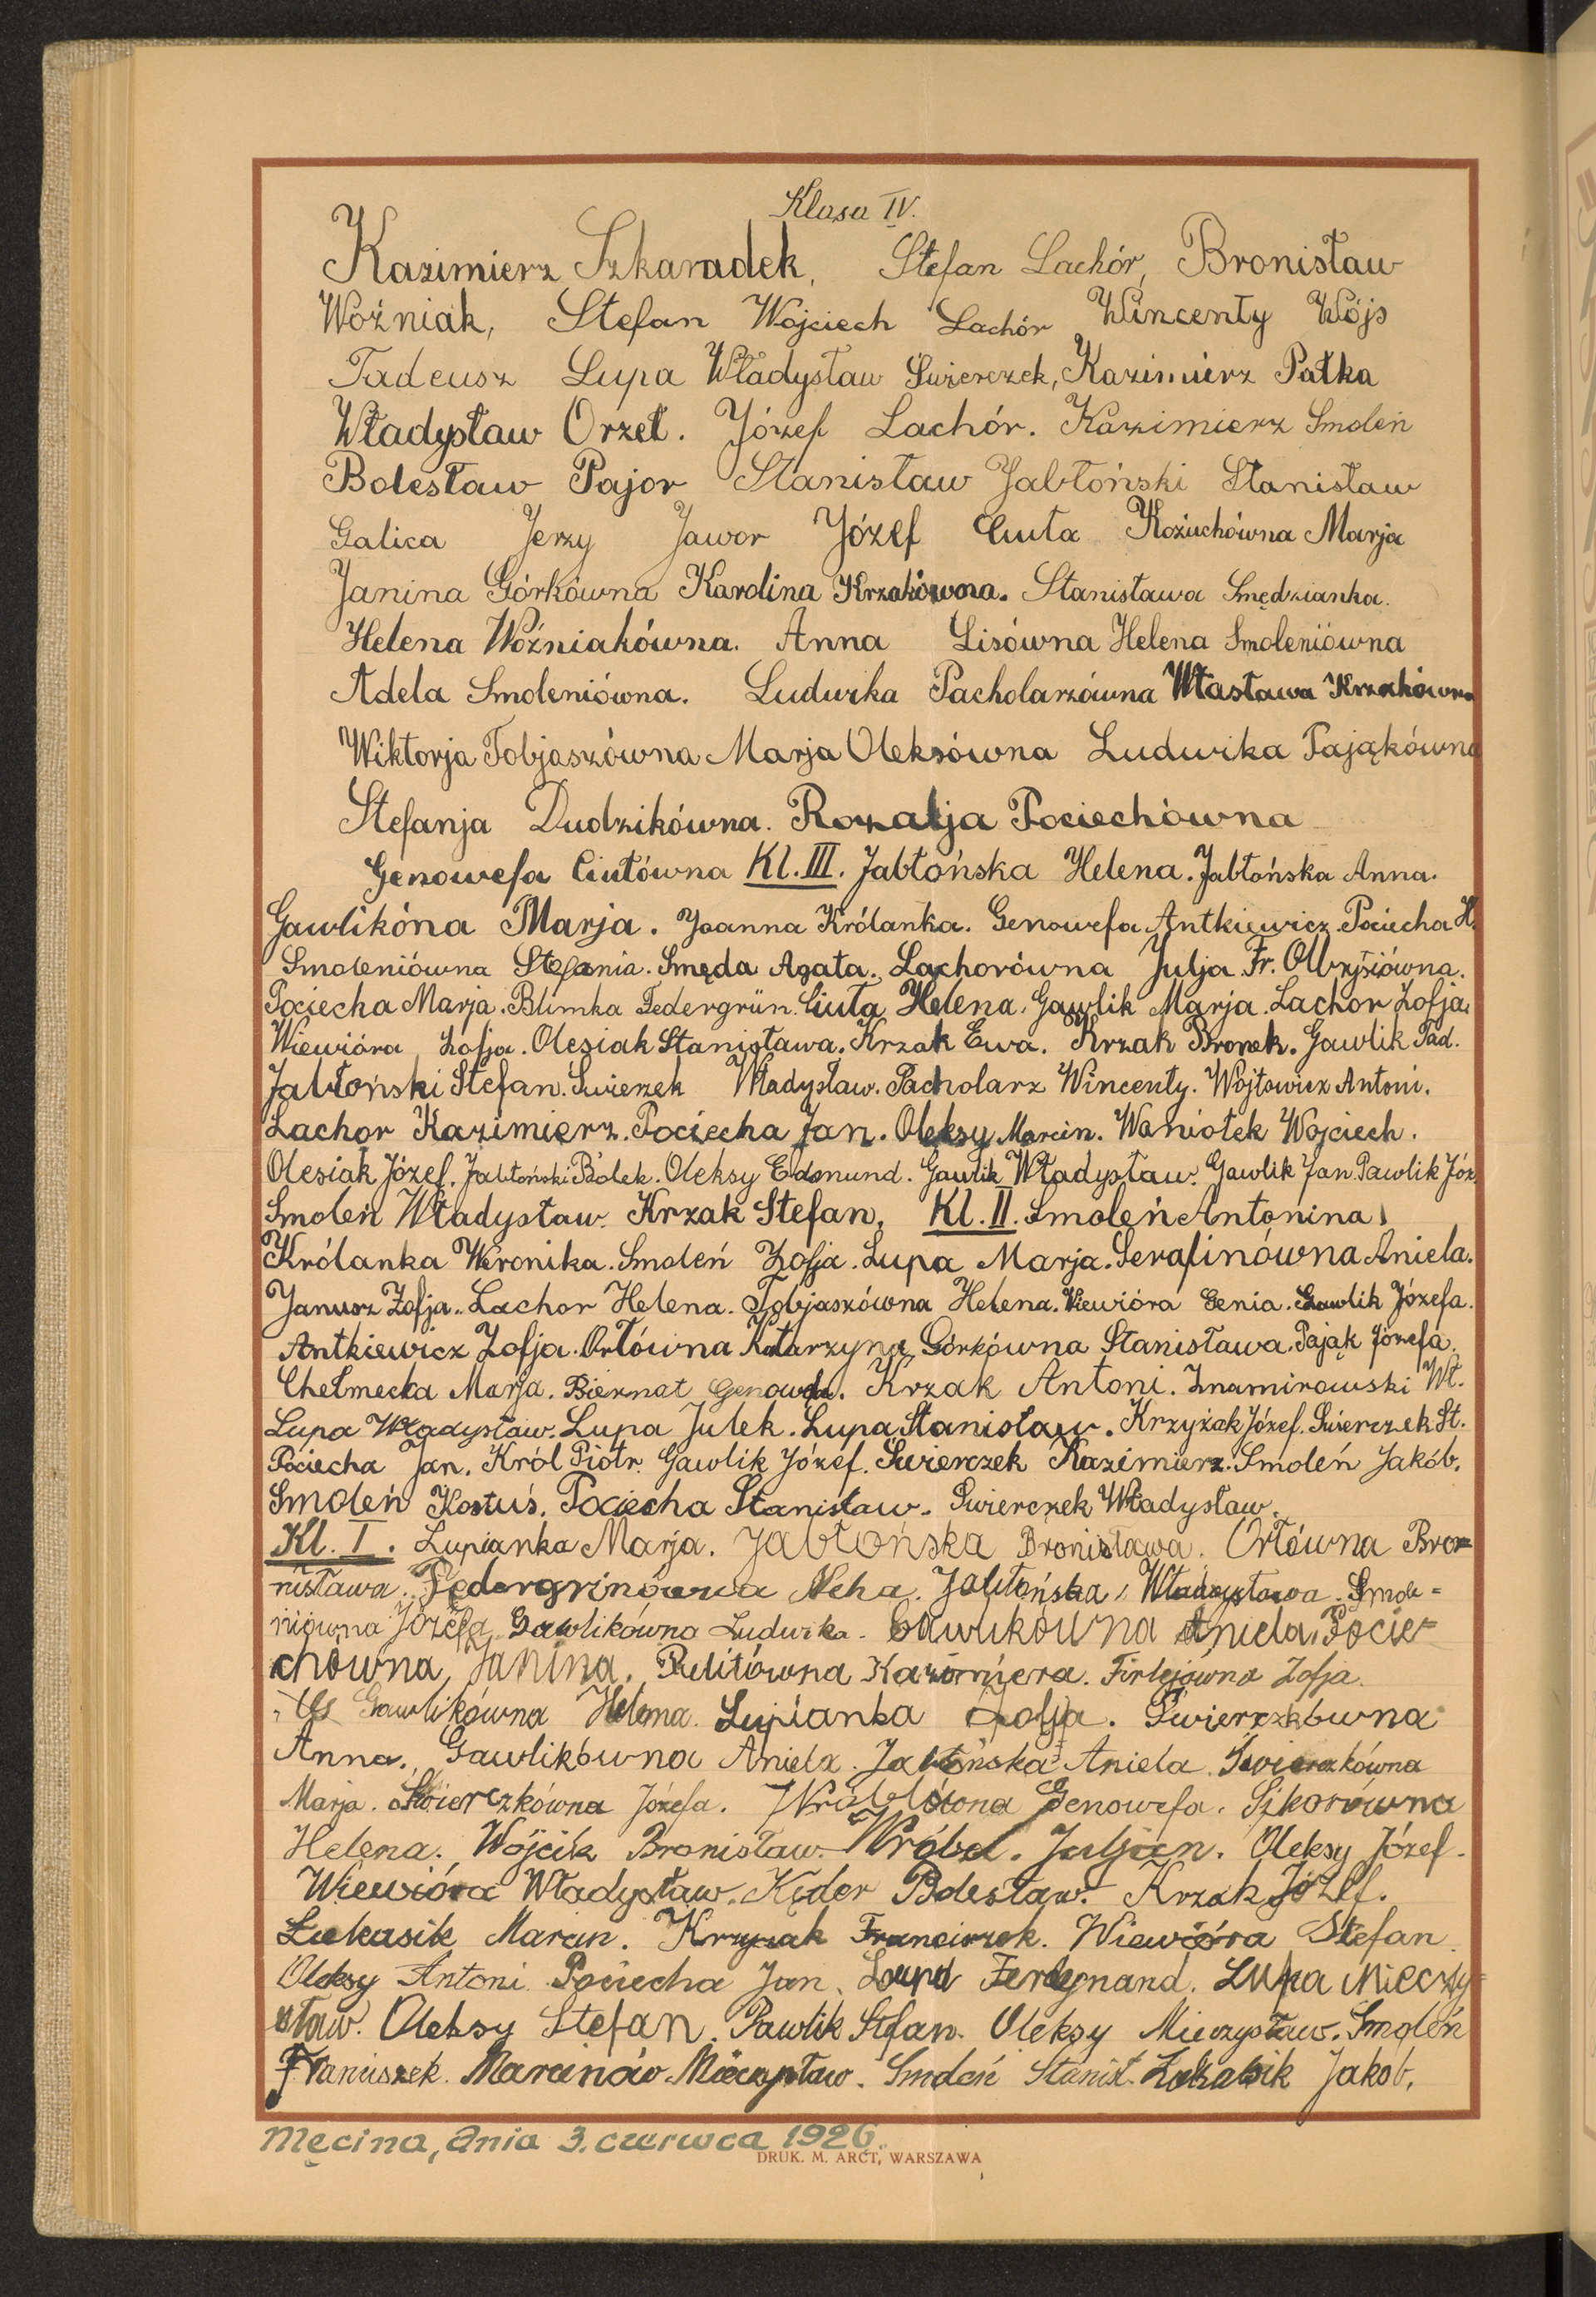 Klasa IV.
Kazimierz Szkaradek, Stefan Lachór, Bronisław
Woźniak, Stefan Wojciech Lachór Wincenty Wójs
Tadeusz Lupa Władysław Świerczek, Kazimierz Pałka
Władysław Orzeł. Józef Lachór. Kazimierz Smoleń
Bolesław Pajor Stanisław Jabłoński Stanisław
Galica Jerzy Jawor Józef Ciuła Kożuchówna Marja
Janina Górkówna Karolina Krzakówna. Stanisława Smędzianka.
Helena Woźniakówna. Anna Lisówna Helena Smoleniówna
Adela Smoleniówna. Ludwika Pacholarzówna Włastawa Krzakówna
Wiktorja Tobjaszówna Marja Oleksówna Ludwika Pająkówna
Stefanja Dudzikówna. Rozalja Pociechówna
Genowefa Ciułówna Kl. III. Jabłońska Helena. Jabłońska Anna.
Gawlikóna Marja. Joanna Królanka. Genowefa Antkiewicz. Pociecha H.
Smoleniówna Stefania. Smęda Agata. Lachorówna Julja. Fr. Olbrysiówna.
Pociecha Marja. Blimka Federgrün. Ciuła Helena. Gawlik Marja. Lachor Zofja.
Wiewióra Zofja. Olesiak Stanisława. Krzak Ewa. Krzak Bronek. Gawlik Tad.
Jabłoński Stefan. Świerzek Władysław. Pacholarz Wincenty. Wojtowicz Antoni.
Lachor Kazimierz. Pociecha Jan. Oleksy Marcin. Waniołek Wojciech.
Olesiak Józef. Jabłoński Bolek. Oleksy Edmund. Gawlik Władysław. Gawlik Jan. Pawlik Józ.
Smoleń Władysław. Krzak Stefan. Kl. II. Smoleń Antonina.
Królanka Weronika. Smoleń Zofja. Lupa Marja. Serafinówna Aniela.
Janusz Zofja. Lachor Helena. Tobjaszówna Helena. Wiewióra Genia. Gawlik Józefa.
Antkiewicz Zofja. Orłówna Katarzyna Górkówna Stanisława. Pająk Józefa.
Chełmecka Marja. Biernat Genowefa. Krzak Antoni. Znamirowski Wł.
Lupa Władysław. Lupa Julek. Lupa Stanisław. Krzyżak Józef. Świerczek St.
Pociecha Jan. Król Piotr. Gawlik Józef. Świerczek Kazimierz. Smoleń Jakób.
Smoleń Kostuś. Pociecha Stanisław. Świerczek Władysław.
Kl. I. Lupianka Marja. Jabłońska Bronisława. Orłówna Bro-
nisława. Federgrinówna Neha. Jabłońska Władysława. Smole-
niówna Józefa. Gawlikówna Ludwika. Gawlikówna Aniela. Pocie-
chówna Janina. Kazimiera. Firlejówna Zofja.
Gawlikówna Helena. Lupianka Zofja. Świerczkówna
Anna. Gawlikówna Aniela. Jabłońska Aniela. Świerczkówna
Marja. Świerczkówna Józefa. Wróblówna Genowefa. Sikorówna
Helena. Wójcik Bronisław. Wróbel. Juljan. Oleksy Józef.
Wiewióra Władysław. Kędor Bolesław. Krzak Józef.
Łukasik Marcin. Krzyżak Franciszek. Wiewióra Stefan.
Oleksy Antoni. Pociecha Jan. Lupa Ferdynand. Lupa Mieczy-
sław. Oleksy Stefan. Pawlik Stefan. Oleksy Mieczysław. Smoleń
Franciszek. Marcinów Mieczysław. Smoleń Stanisł. Łukasik Jakób.
Męcina, dnia 3. czerwca 1926.
DRUK. M. ARCT, WARSZAWA